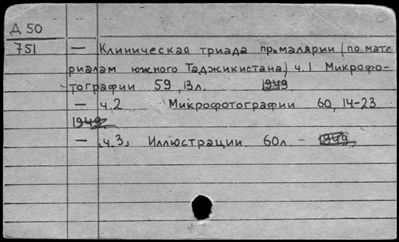 Д 50
751 — Клиническая триада при малярии (по мате
риалам южного Таджикистана) ч.1 Микрофо-
тографии 59, 13л. 1949
— ч.2 Микрофотографии 60, 14-23
1949
— ч.3, Иллюстрации 60л - 1949